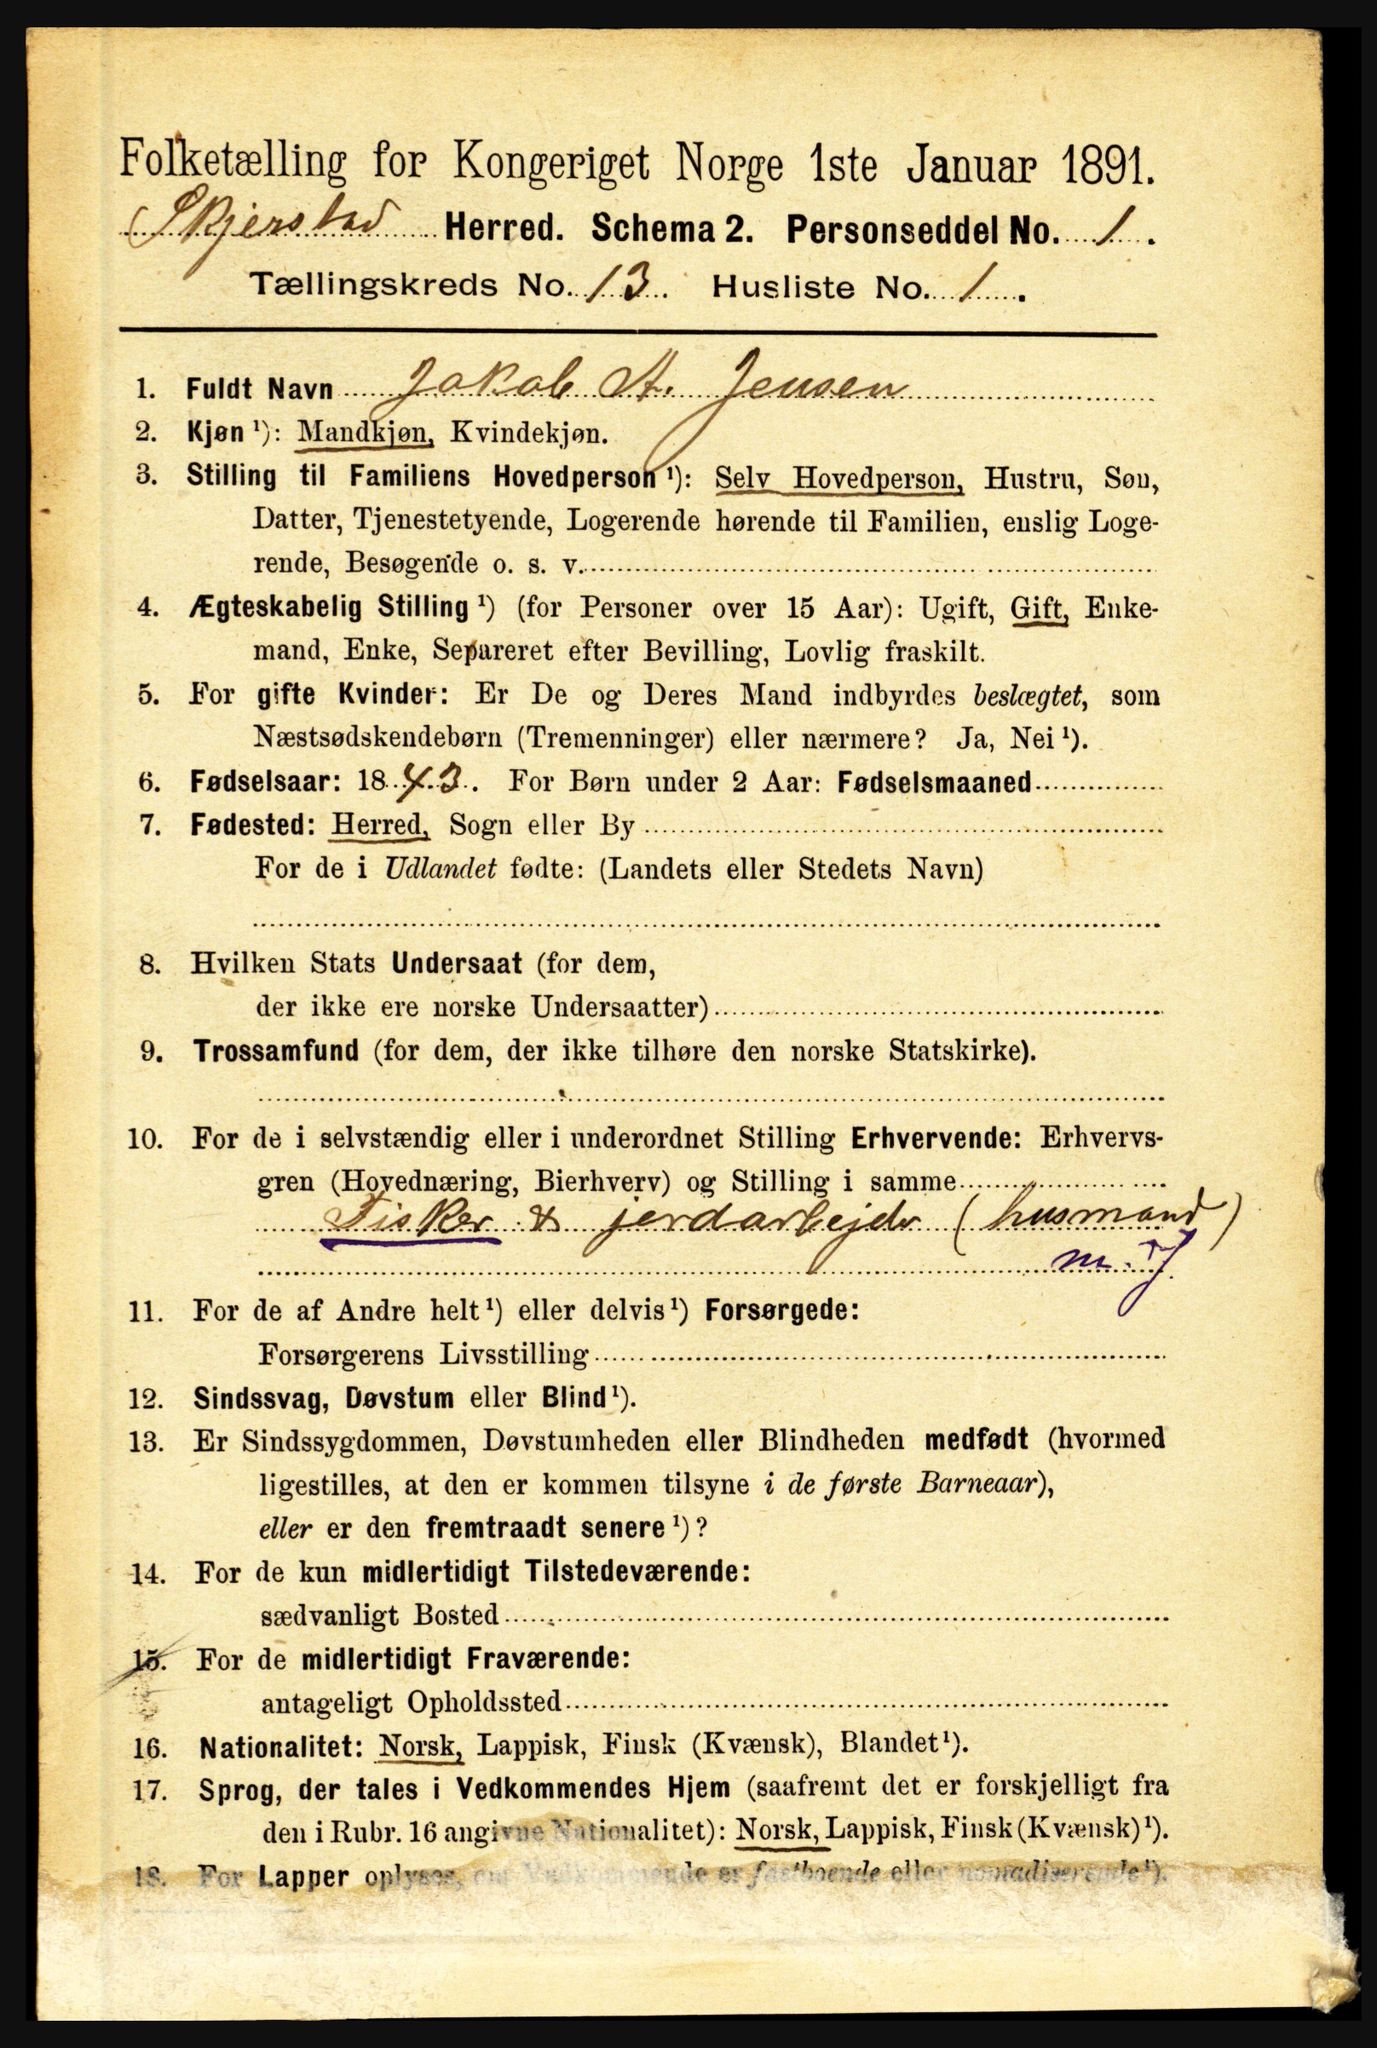 Folketælling for Kongeriget Norge 1ste Januar 1891.
Skjerstad Herred. Schema 2. Personseddel No. 1.
Tællingskreds No. 13. Husliste No. 1.
1. Fuldt Navn Jakob A. Jensen
2. Kjøn ¹): Mandkjøn, Kvindekjøn.
3. Stilling til Familiens Hovedperson ¹): Selv Hovedperson, Hustru, Søn,
Datter, Tjenestetyende, Logerende hørende til Familien, enslig Loge-
rende, Besøgende o. s. v.
4. Ægteskabelig Stilling ¹) (for Personer over 15 Aar): Ugift, Gift, Enke-
mand, Enke, Separeret efter Bevilling, Lovlig fraskilt.
5. For gifte Kvinder: Er De og Deres Mand indbyrdes beslægtet, som
Næstsødskendebørn (Tremenninger) eller nærmere? Ja, Nei ¹).
6. Fødselsaar: 1843. For Børn under 2 Aar: Fødselsmaaned
7. Fødested: Herred, Sogn eller By
For de i Udlandet fødte: (Landets eller Stedets Navn)
8. Hvilken Stats Undersaat (for dem,
der ikke ere norske Undersaatter)
9. Trossamfund (for dem, der ikke tilhøre den norske Statskirke).
10. For de i selvstændig eller i underordnet Stilling Erhvervende: Erhvervs-
gren (Hovednæring, Bierhverv) og Stilling i samme
Fisker & jordarbejde (husmand)
m. J.
11. For de af Andre helt ¹) eller delvis ¹) Forsørgede:
Forsørgerens Livsstilling
12. Sindssvag, Døvstum eller Blind ¹).
13. Er Sindssygdommen, Døvstumheden eller Blindheden medfødt (hvormed
ligestilles, at den er kommen tilsyne i de første Barneaar),
eller er den fremtraadt senere ¹)?
14. For de kun midlertidigt Tilstedeværende:
sædvanligt Bosted
15. For de midlertidigt Fraværende:
antageligt Opholdssted
16. Nationalitet: Norsk, Lappisk, Finsk (Kvænsk), Blandet ¹).
17. Sprog, der tales i Vedkommendes Hjem (saafremt det er forskjelligt fra
den i Rubr. 16 angivne Nationalitet): Norsk, Lappisk, Finsk (Kvænsk) ¹).
18. For Lapper oplyses, om Vedkommende er fastboende eller nomadiserende ¹).